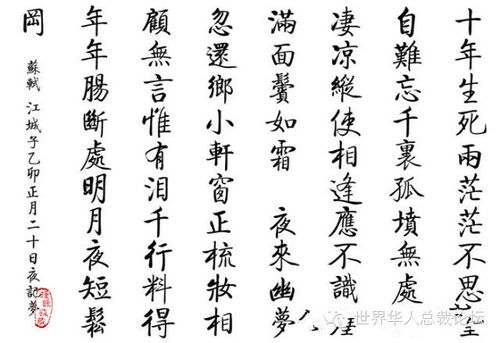 十年生死兩茫茫不思量
自難忘千裏孤墳無處
凄凉縱使相逢應不識塵
滿面鬢如霜 夜來幽夢
忽還鄉小軒窗正梳妝相
顧無言惟有泪千行料得
年年腸斷處明月夜短鬆
岡
蘇軾 江城子乙卯正月二十日夜記夢
世界华人总裁论坛